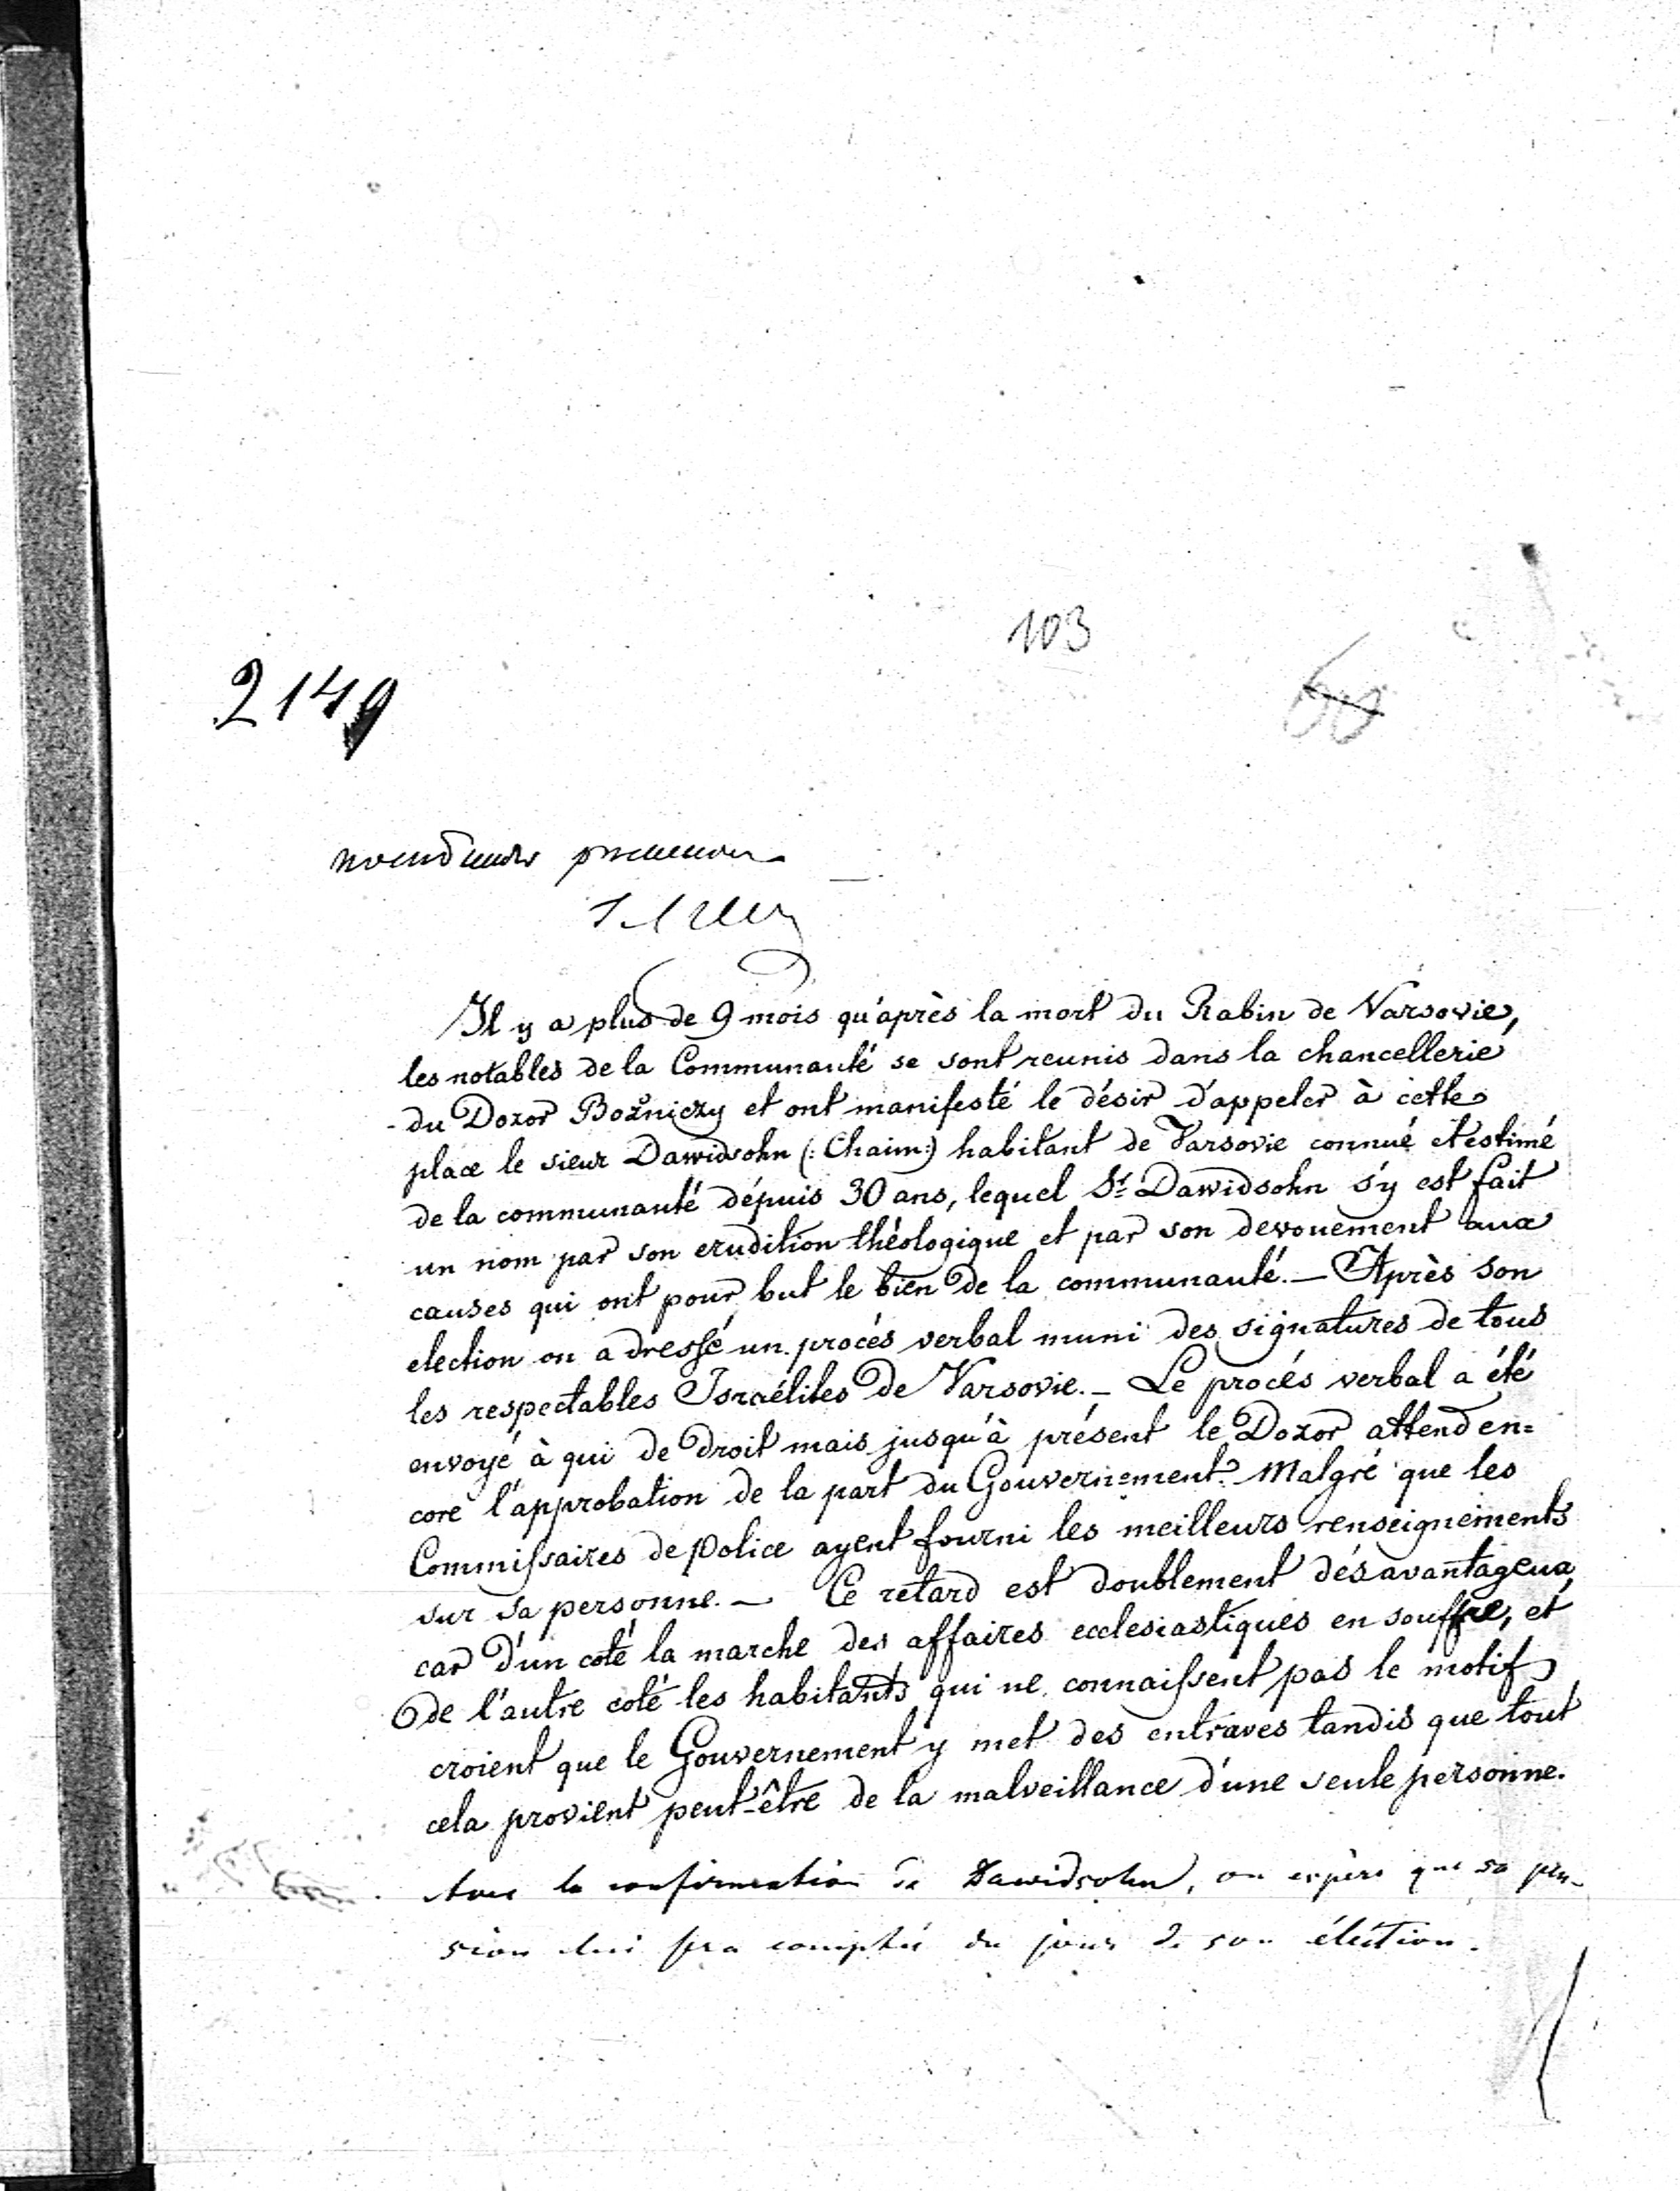 103
2149
60
Il y a plus de 9 mois qu'après la mort du Rabin de Varsovie,
les notables de la Communauté se sont reunis dans la chancellerie
du Dozor Bożniczy et ont manifesté le désir d'appeler à cette
place le sieur Dawidsohn (: Chaim:) habitant de Varsovie connué et estimé
de la communauté dépuis 30 ans, lequel Sr Dawidsohn s'y est fait
un nom par son erudition théologique et par son devouement aux
causes qui ont pour but le bien de la communauté. — Après son
election on a dressé un procés verbal muni des signatures de tous
les respectables Israélites de Varsovie. — Le procés verbal a été
envoyé à qui de droit mais jusqu'à présent le Dozor attend en=
core l'approbation de la part du Gouvernement. Malgré que les
Commissaires de police ayent fourni les meilleurs renseignements
sur sa personne. — Ce retard est doublement désavantageux
car d'un coté la marche des affaires ecclesiastiques en souffre, et
de l'autre coté les habitants qui ne connaissent pas le motif
croient que le Gouvernement y met des entraves tandis que tout
cela provient peut-être de la malveillance d'une seule personne.
Avec la confirmation de Dawidsohn, on espère que sa pen-
sion lui sera comptée du jour de son éléction.